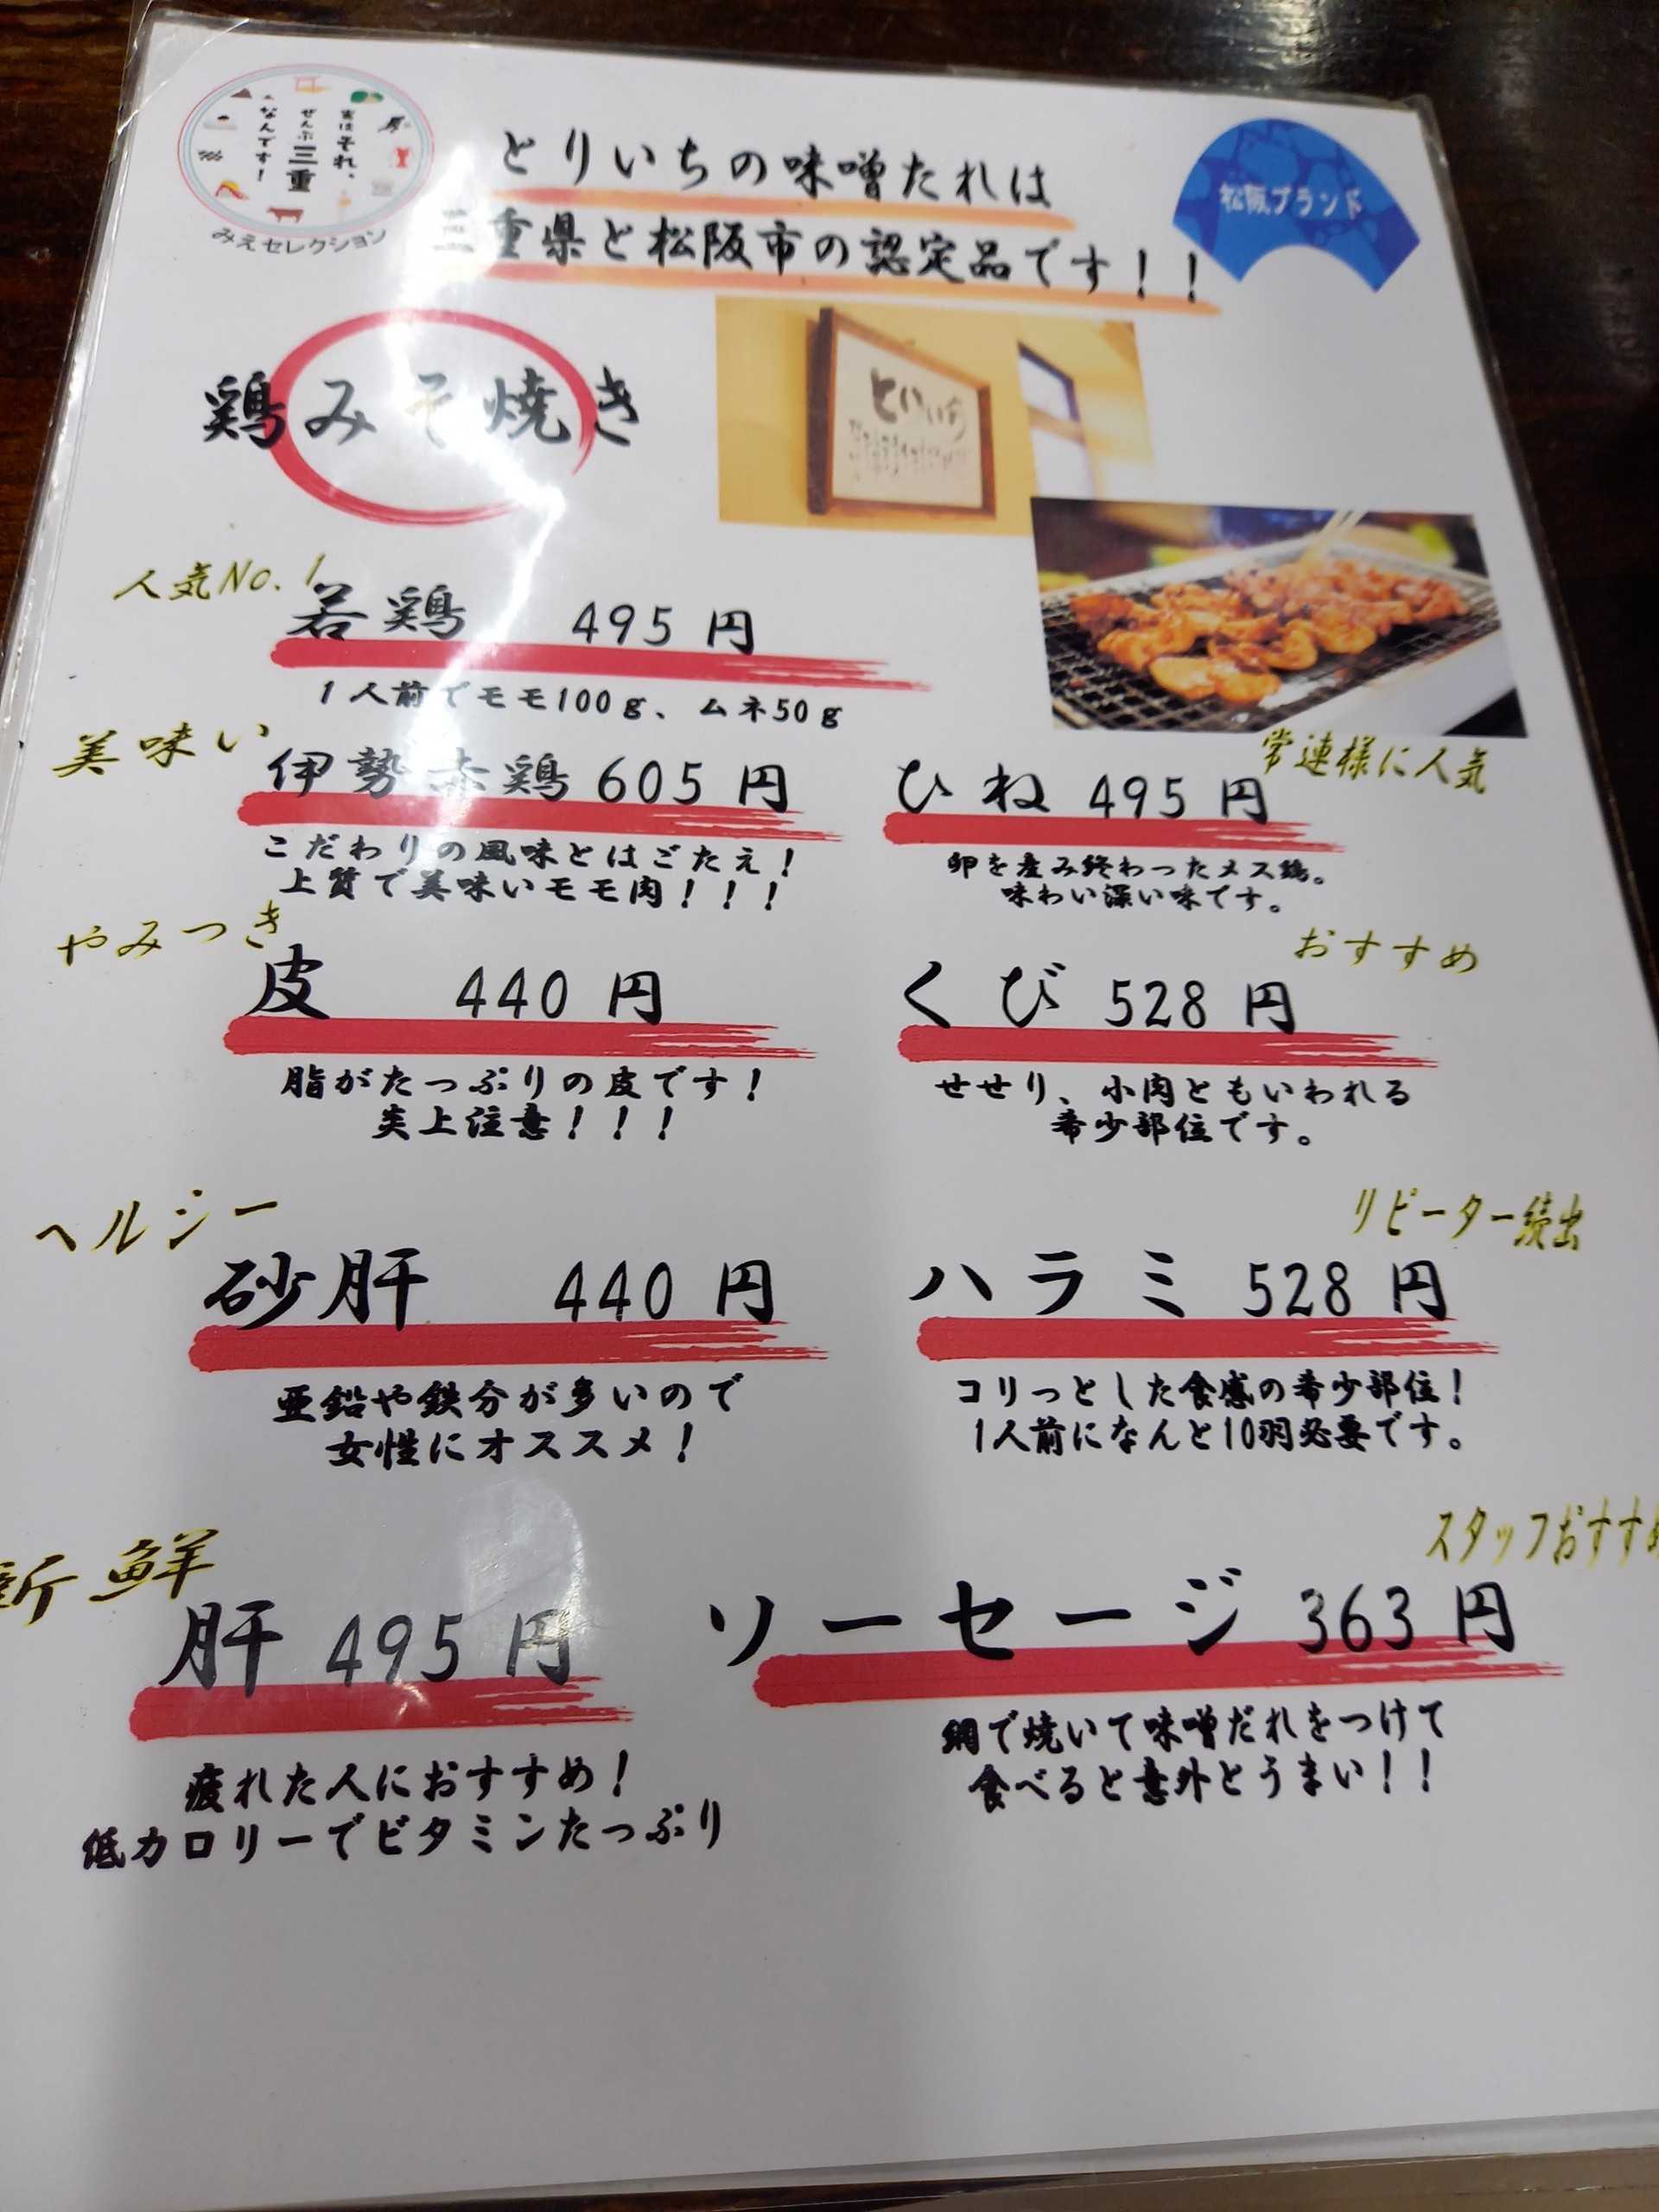 実はそれ、
ぜんぶ三重
なんです！
みえセレクション
とりいちの味噌たれは
三重県と松阪市の認定品です！！
松阪ブランド
鶏みそ焼き
とりいち
人気No.1
若鶏 495円
1人前でモモ100g、ムネ50g
美味い
伊勢赤鶏 605円
こだわりの風味とはごたえ！
上質で美味いモモ肉！！！
常連様に人気
ひね 495円
卵を産み終わったメス鶏。
味わい深い味です。
やみつき
皮 440円
脂がたっぷりの皮です！
炎上注意！！！
おすすめ
くび 528円
せせり、小肉ともいわれる
希少部位です。
ヘルシー
砂肝 440円
亜鉛や鉄分が多いので
女性にオススメ！
リピーター続出
ハラミ 528円
コリっとした食感の希少部位！
1人前になんと10羽必要です。
新鮮
肝 495円
疲れた人におすすめ！
低カロリーでビタミンたっぷり
スタッフおすすめ
ソーセージ 363円
網で焼いて味噌だれをつけて
食べると意外とうまい！！